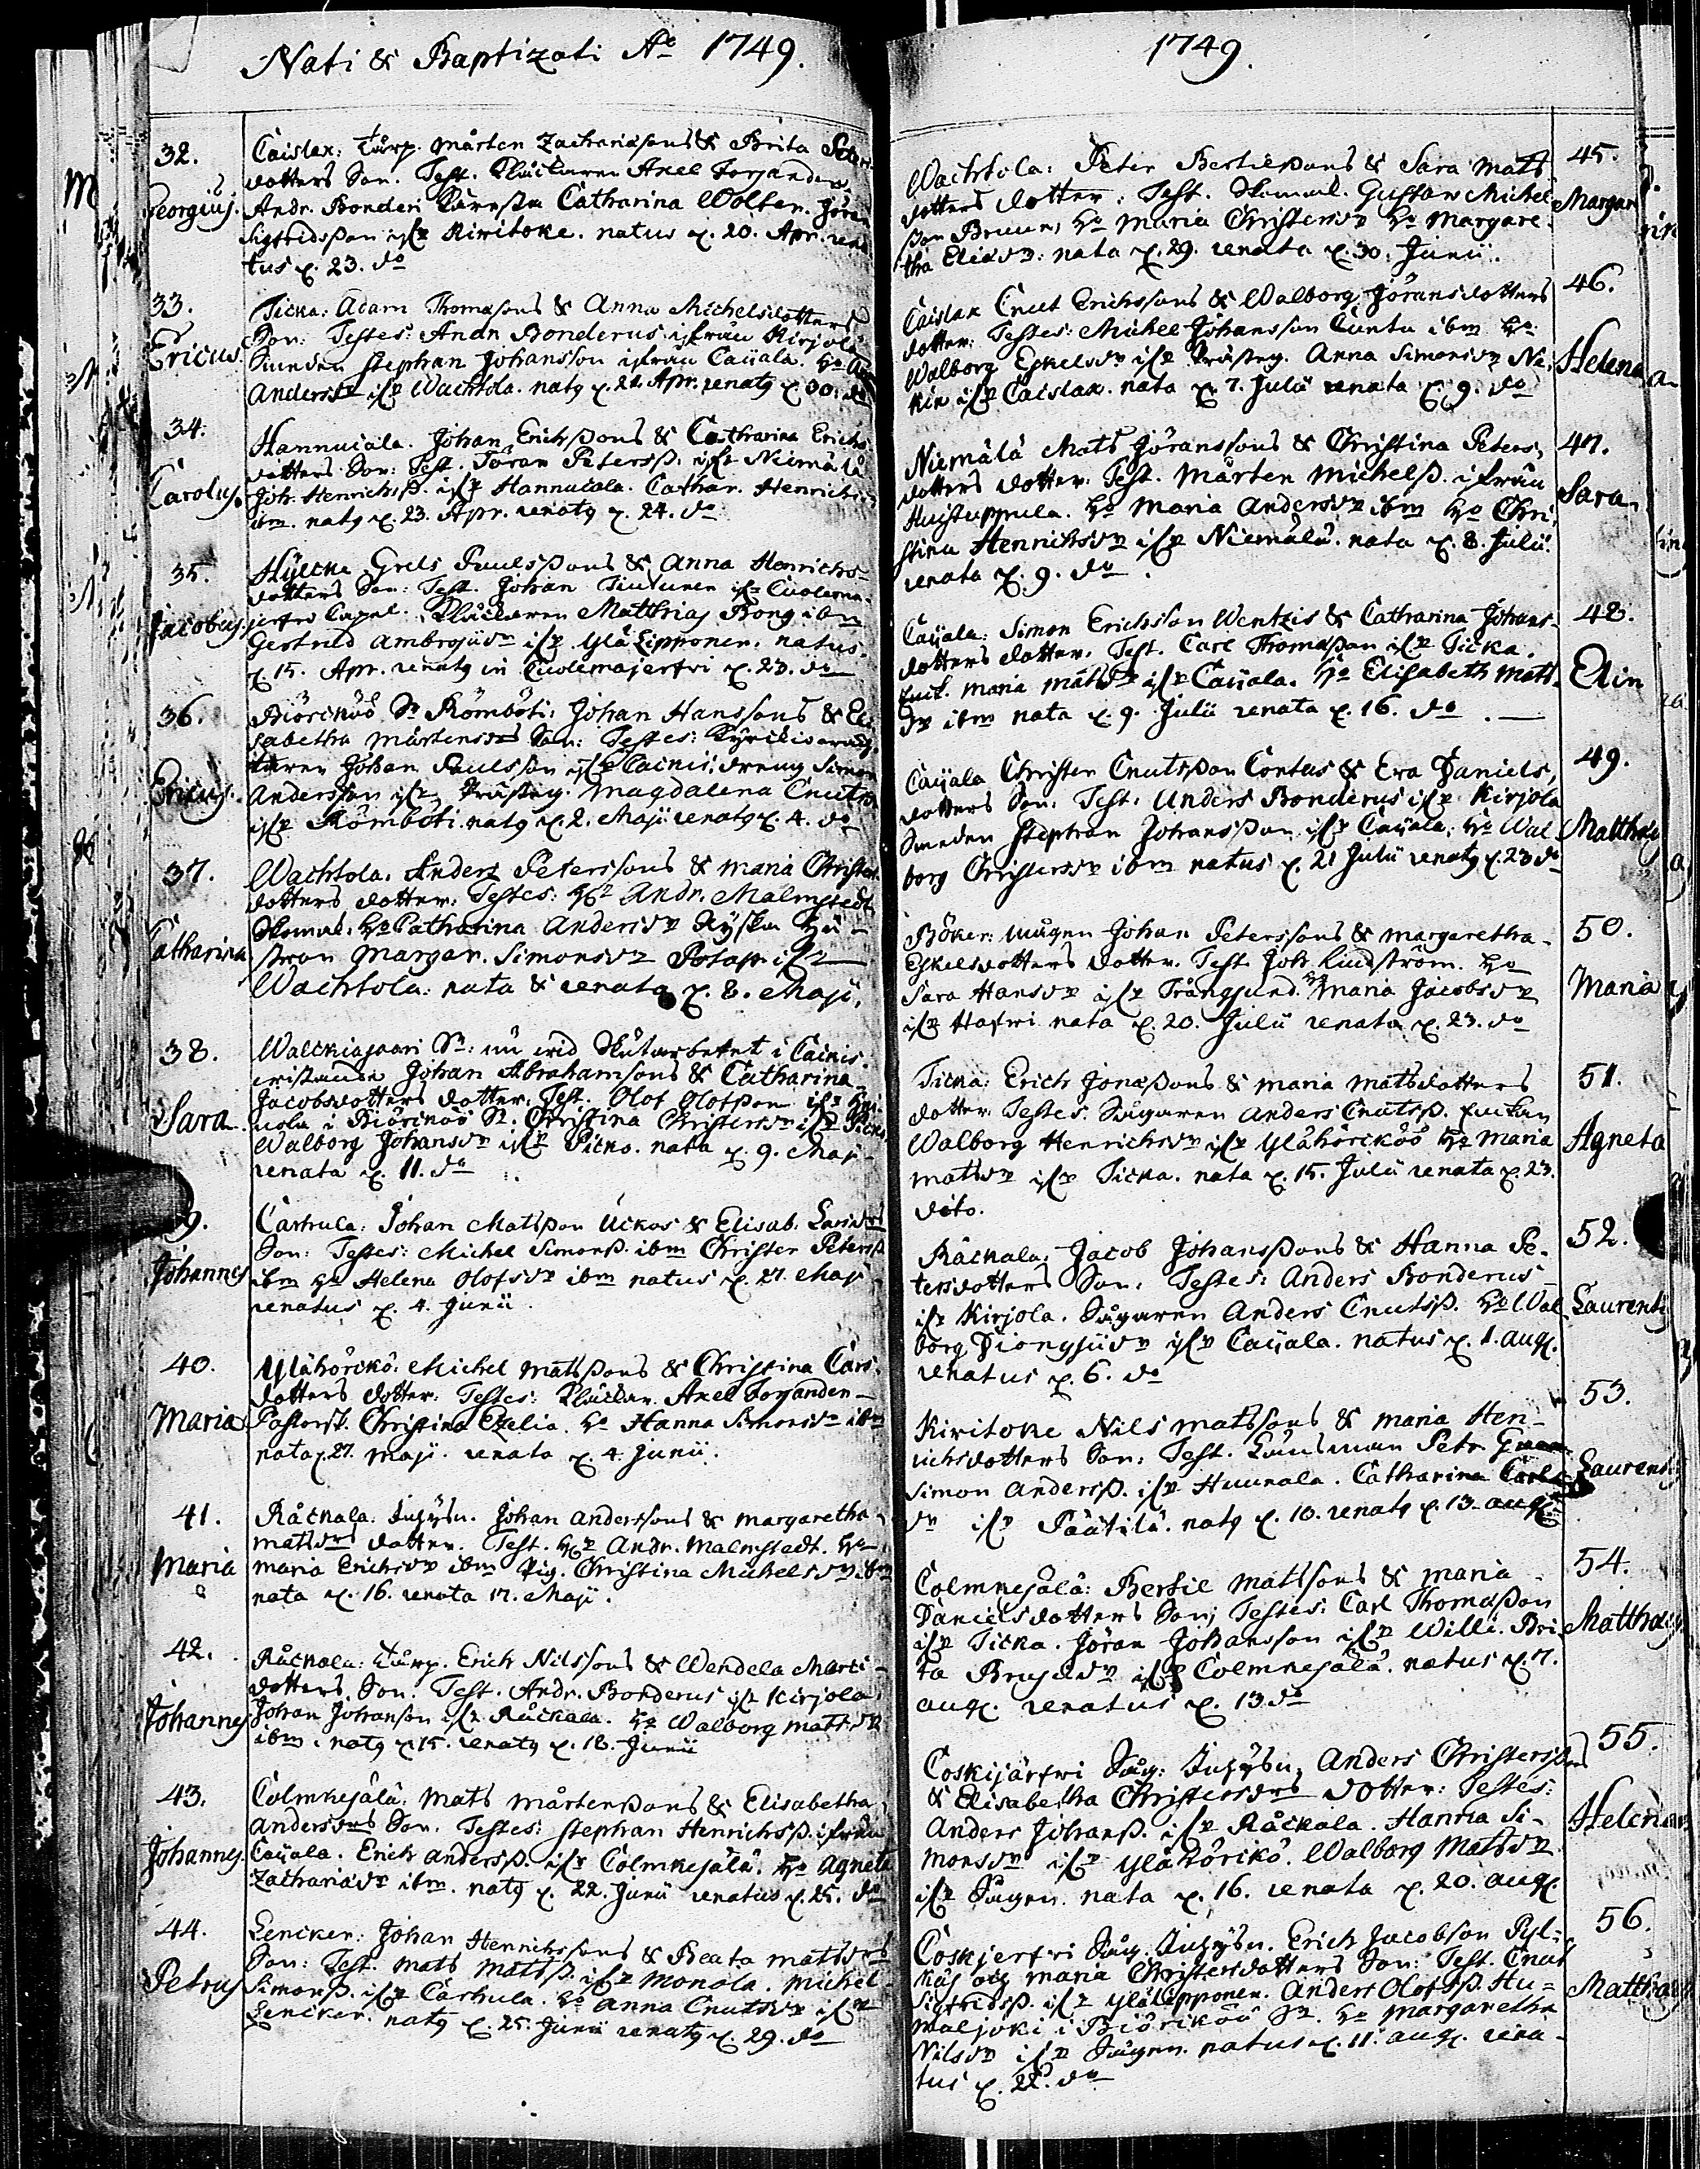 Nati & Baptizati Ao 1749.
32.
Georgius.
Caislax: Torp. Mårten Zachariæsons & Brita Peters
dotters Son. Test. Klåckaren Axel Forsander
Andr. Bonderi Catharina Wolter. Jöran
Sigfridsson ifr Kiritoke. natus d. 20. Apr. rena
tus d. 23. do
33.
Ericus.
Ticka: Adam Thomæsons & Anna Michelsdotters
Son: Testes: Andr Bonderus ifrån Kirjola
Smeden Stephan Johansson ifrån Caijala. Ho
Andersdr ifr Wachtola. natq d. 22. Apr. renatq d 30. do
34.
Carolus.
Hannuiala. Johan Erichssons & Catharina Erichs
dotters Son: Test. Jöran Peterss. ifr Niemälä
Joh. Henrichss. ifr Hannuiala. Cathar. Henrichs
ibm. natq d. 23. Apr. renatq d. 24. do
35.
Jacobus.
Hÿlcke Grels Puulssons & Anna Henrichs-
dotters Son: Test. Johan Tiutunen ifr Cuolema-
jerfwi Capel. Klåckaren Matthias Bong ibm
Gertrud Ambrosiidr ifr Ylä Lipponen. natus.
d. 15. Apr. renatq in Cuolemajerfwi d. 23. do
36.
Ericus.
Biörckjöö Sn Römböti: Johan Hanssons & Eli
sabetha Mårtensdrs Son: Testes: Kyrckiowäch
taren Johan Paulsson ifr Cainis. dreng Simon
Andersson ifr Prästeg. Magdalena Cnutsdr
ifr Römböti. natq d. 2. Maji renatq d. 4. do
37.
Catharina
Wachtola. Anders Peterssons & Maria Christers
dotters dotter. Testes: Hr Andr. Malmstedt
Skomak. Ho Catharina Andersdr Ryska Hu-
strun Margar. Simonsdr Potap ifr
Wachtola. nata & renata d. 8. Maji.
38.
Sara
Walckiasaari Sn: nu wid Skutarbetet i Cainis
wistande Johan Abrahamsons & Catharina
Jacobsdotters dotter. Test. Olof Olofson ifr
uola i Biörckjöö Sn. Christina Christersdr ifr Picko
Walborg Johansdr ifr Picko. nata d. 9. Maji
renata d. 11. do
9.
Johannes
Carhula: Johan Matsson Uckos & Elisab. Larsdrs
Son: Testes: Michel Simonss. ibm Christer Peterss
ibm Ho Helena Olofsdr ibm natus d. 27. Maji
renatus d. 4. Junii.
40.
Maria
Ylähörckö. Michel Matssons & Christina Cars-
dotters dotter. Testes: Klåckar. Axel Forsander
Pastorsk. Christina Ezelia. Ho Hanna Simonsdr ibm
nata d. 27. Maji. renata d. 4. Junii.
41.
Maria
Råckala. Inhÿsn. Johan Anderssons & Margaretha
Matsdrs dotter. Test. Hr Andr. Malmstedt. Ho
Maria Erichsdr ibm Pig. Christina Michelsdr ibm
nata d. 16. renata 17. Maji.
42.
Johannes
Råckala: Torp. Erich Nilssons & Wendela Marci-
dotters Son. Test. Andr. Bonderus ifr Kirjola
Johan Johanson ifr Råckala. Ho Walborg Matsdr
ibm. natq d. 15. renatq d. 18. Junii
43.
Johannes.
Colmkejälä. Mats Mårtenssons & Elisabetha
Andersdrs Son. Testes: Stephan Henrichss. ifrån
Caijala. Erich Anderss. ifr Colmkejälä. Ho Agneta
Zachariædr ibm. natq d. 22. Junii renatus d. 25. do
44.
Petrus
Lencker: Johan Henrichssons & Beata Matsdrs
Son: Test. Mats Matss. ifr Monola. Michel
Simonss. ifr Carhula. Ho Anna Cnutsdr ifr
Lencker. natq d. 25. Junii renatq d. 29. do
1749.
Wachtola: Peter Bertilssons & Sara Mats
dotters dotter: Test. Skomak. Gustaw Michel
son Bruun, Ho Maria Christersdr Ho Margare-
tha Eliædr: nata d. 29. renata d. 30. Junii.
45.
Margar
Caislax Cnut Erichssons & Walborg Jöransdotters
dotter: Testes: Michel Johansson Cunta ibm Ho
Walborg Eskelsdr ifr Prästeg. Anna Simonsdr Ni-
kin ifr Caislax. nata d. 7. Julii renata d. 9. do
46.
Helena
Niemälä Mats Jöranssons & Christina Peters,
dotters dotter. Test. Mårten Michelss. ifrån
Huistuppula. Ho Maria Andersdr ibm Ho Chri,
stina Henrichsdr ifr Niemälä. nata d. 8. Julii.
renata d. 9. do.
47.
Sara.
Caijala: Simon Erichsson Wentzis & Catharina Johans-
dotters dotter. Test. Carl Thomæson ifr Ticka.
Enck. Maria Matsdr ifr Caijala. Ho Elisabeth Mats-
dr ibm nata d. 9. Julii renata d. 16. do.
48.
Elin
Caijala Christer Cnutsson Contus & Eva Daniels,
dotters Son: Test. Anders Bonderus ifr Kirjola
Smeden Stephan Johansson ifr Caijala, Ho Wal-
borg Christersdr ibm natus d. 21 Julii renatq d. 23 do
49.
Matthæq
Böker: Mågen Johan Peterssons & Margaretha
Eskelsdotters dotter. Test. Joh. Lindström. Ho
Sara Hansdr ifr Trångsund. Ho Maria Jacobsdr
ifr Hafwi nata d. 20. Julii renata d. 23. do
50.
Maria
Ticka: Erich Jonæssons & Maria Matsdotters
dotter. Testes. Sågaren Anders Cnutss. Enckan
Walborg Henrichsdr ifr Ylähörcköö Ho Maria
Matsdr ifr Ticka. nata d. 15. Julii renata d. 23.
dito.
51.
Agneta
Råckala: Jacob Johanssons & Hanna Pe-
tersdotters Son: Testes: Anders Bonderus
ifr Kirjola. Sågaren Anders Cnutss. Ho Wal
borg Dionysiidr ifr Caijala. natus d. 1. Aug.
renatus d. 6. do
52.
Laurentq
Kiritoke Nils Matssons & Maria Hen-
richsdotters Son: Test. Länsman Petr.
Simon Anderss. ifr Huunala. Catharina Carls
dr ifr Päätilä. natq d. 10. renatq d. 13. Aug.
53.
Laurent
Colmkejälä: Bertil Matssons & Maria
Danielsdotters Son; Testes: Carl Thomæson
ifr Ticka. Jöran Johansson ifr Willa. Bri-
ta Brusiidr ifr Colmkejälä. natus d. 7.
Aug. renatus d. 13 do
54.
Matthæq
Coskijärfwi Såg: Inhÿsn, Anders Christerssons
& Elisabetha Christersdrs dotter: Testes:
Anders Johanss. ifr Råckala. Hanna Si-
monsdr ifr Ylähörckö. Walborg Matsdr
ifr Sågen. nata d. 16. renata d. 20. Aug.
55.
Helena
Coskjerfwi Såg. Inhÿsn. Erich Jacobson Pyl-
käs och Maria Christersdotters Son: Test. Cnut
Sigfridss. ifr Ylälipponen. Anders Olofss. Hu-
maljoki i Biörckjöö Sn. Ho Margaretha
Nilsdr ifr Sågen. natus d. 11. Aug. rena-
tus d. 22. do
56.
Matthæq